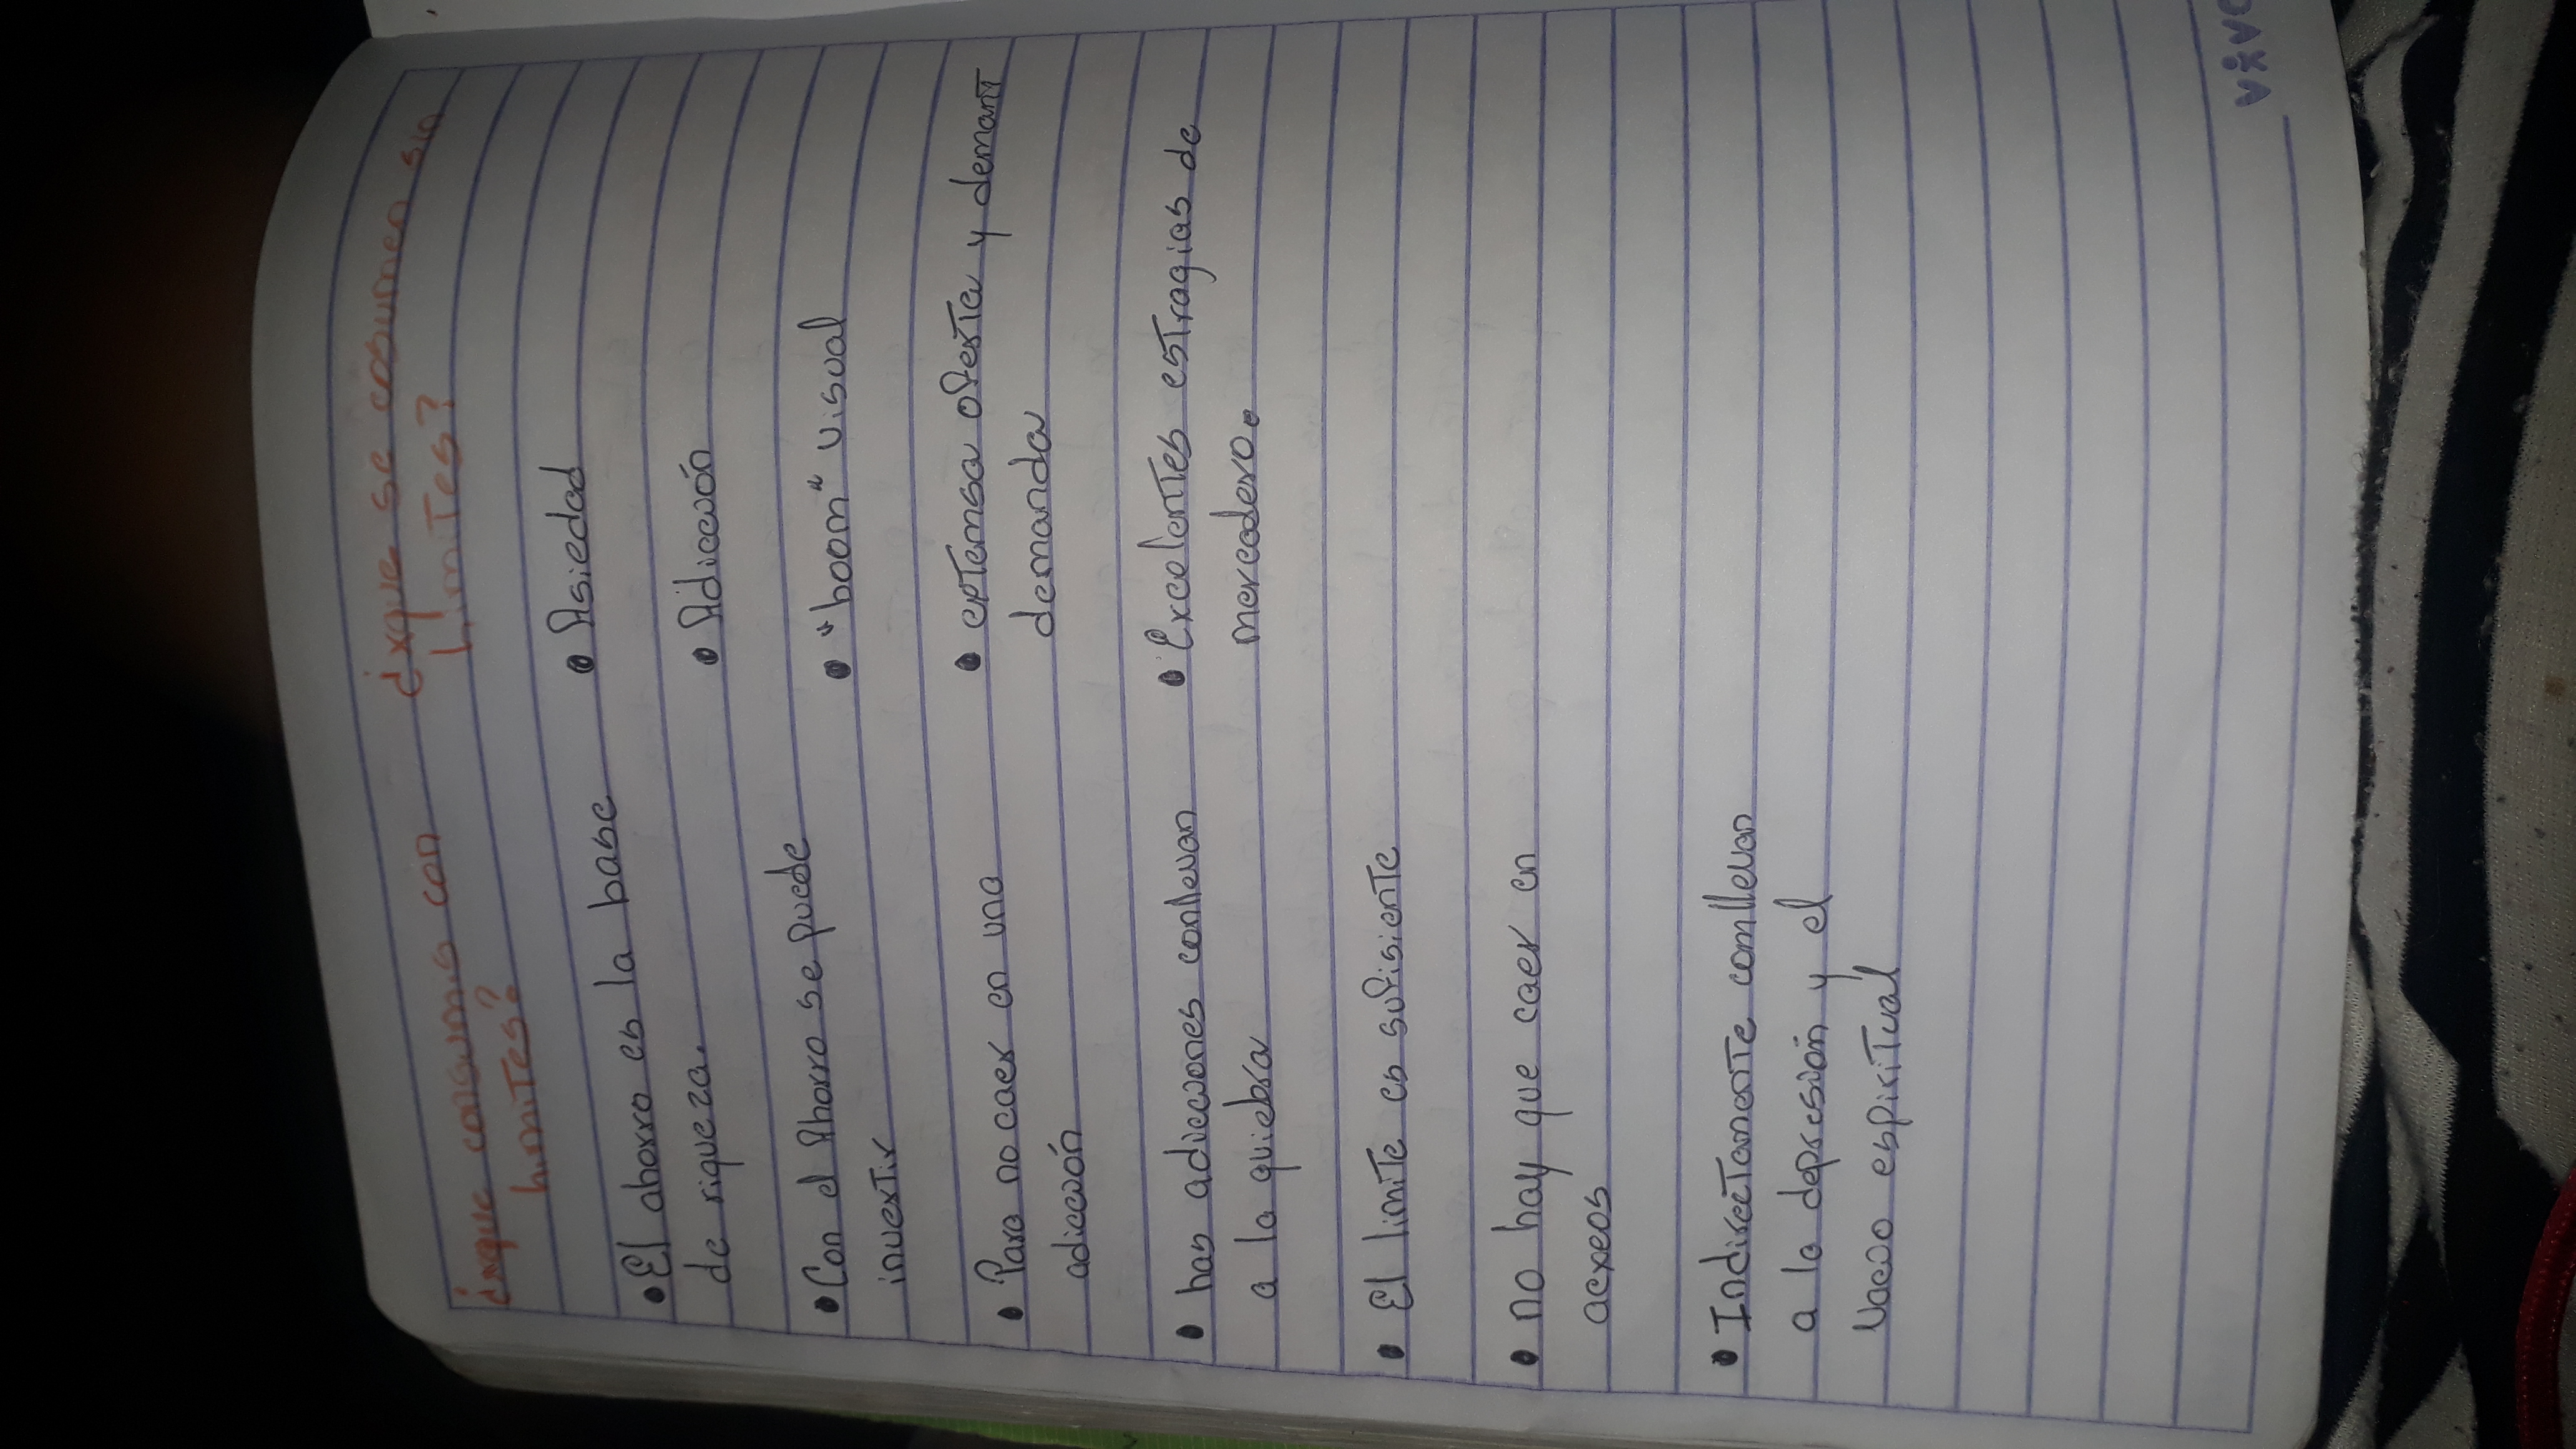 ¿xque consumis con
limites?
• El ahorro es la base
de riqueza.
• Con el Ahorro se puede
invertir
• Para no caer en una
adicción
• las adicciones conlevan
a la quiebra
• El limite es sufisiente
• no hay que caer en
acxeos
• Indirectamente comllevan
a la depresión y el
Vacio espiritual
¿xque se cosumen sin
limites?
• Asiedad
• Adicción
• "boom" visual
• eptemsa oferta y demant
demanda
• Excelentes estragias de
mercadero.